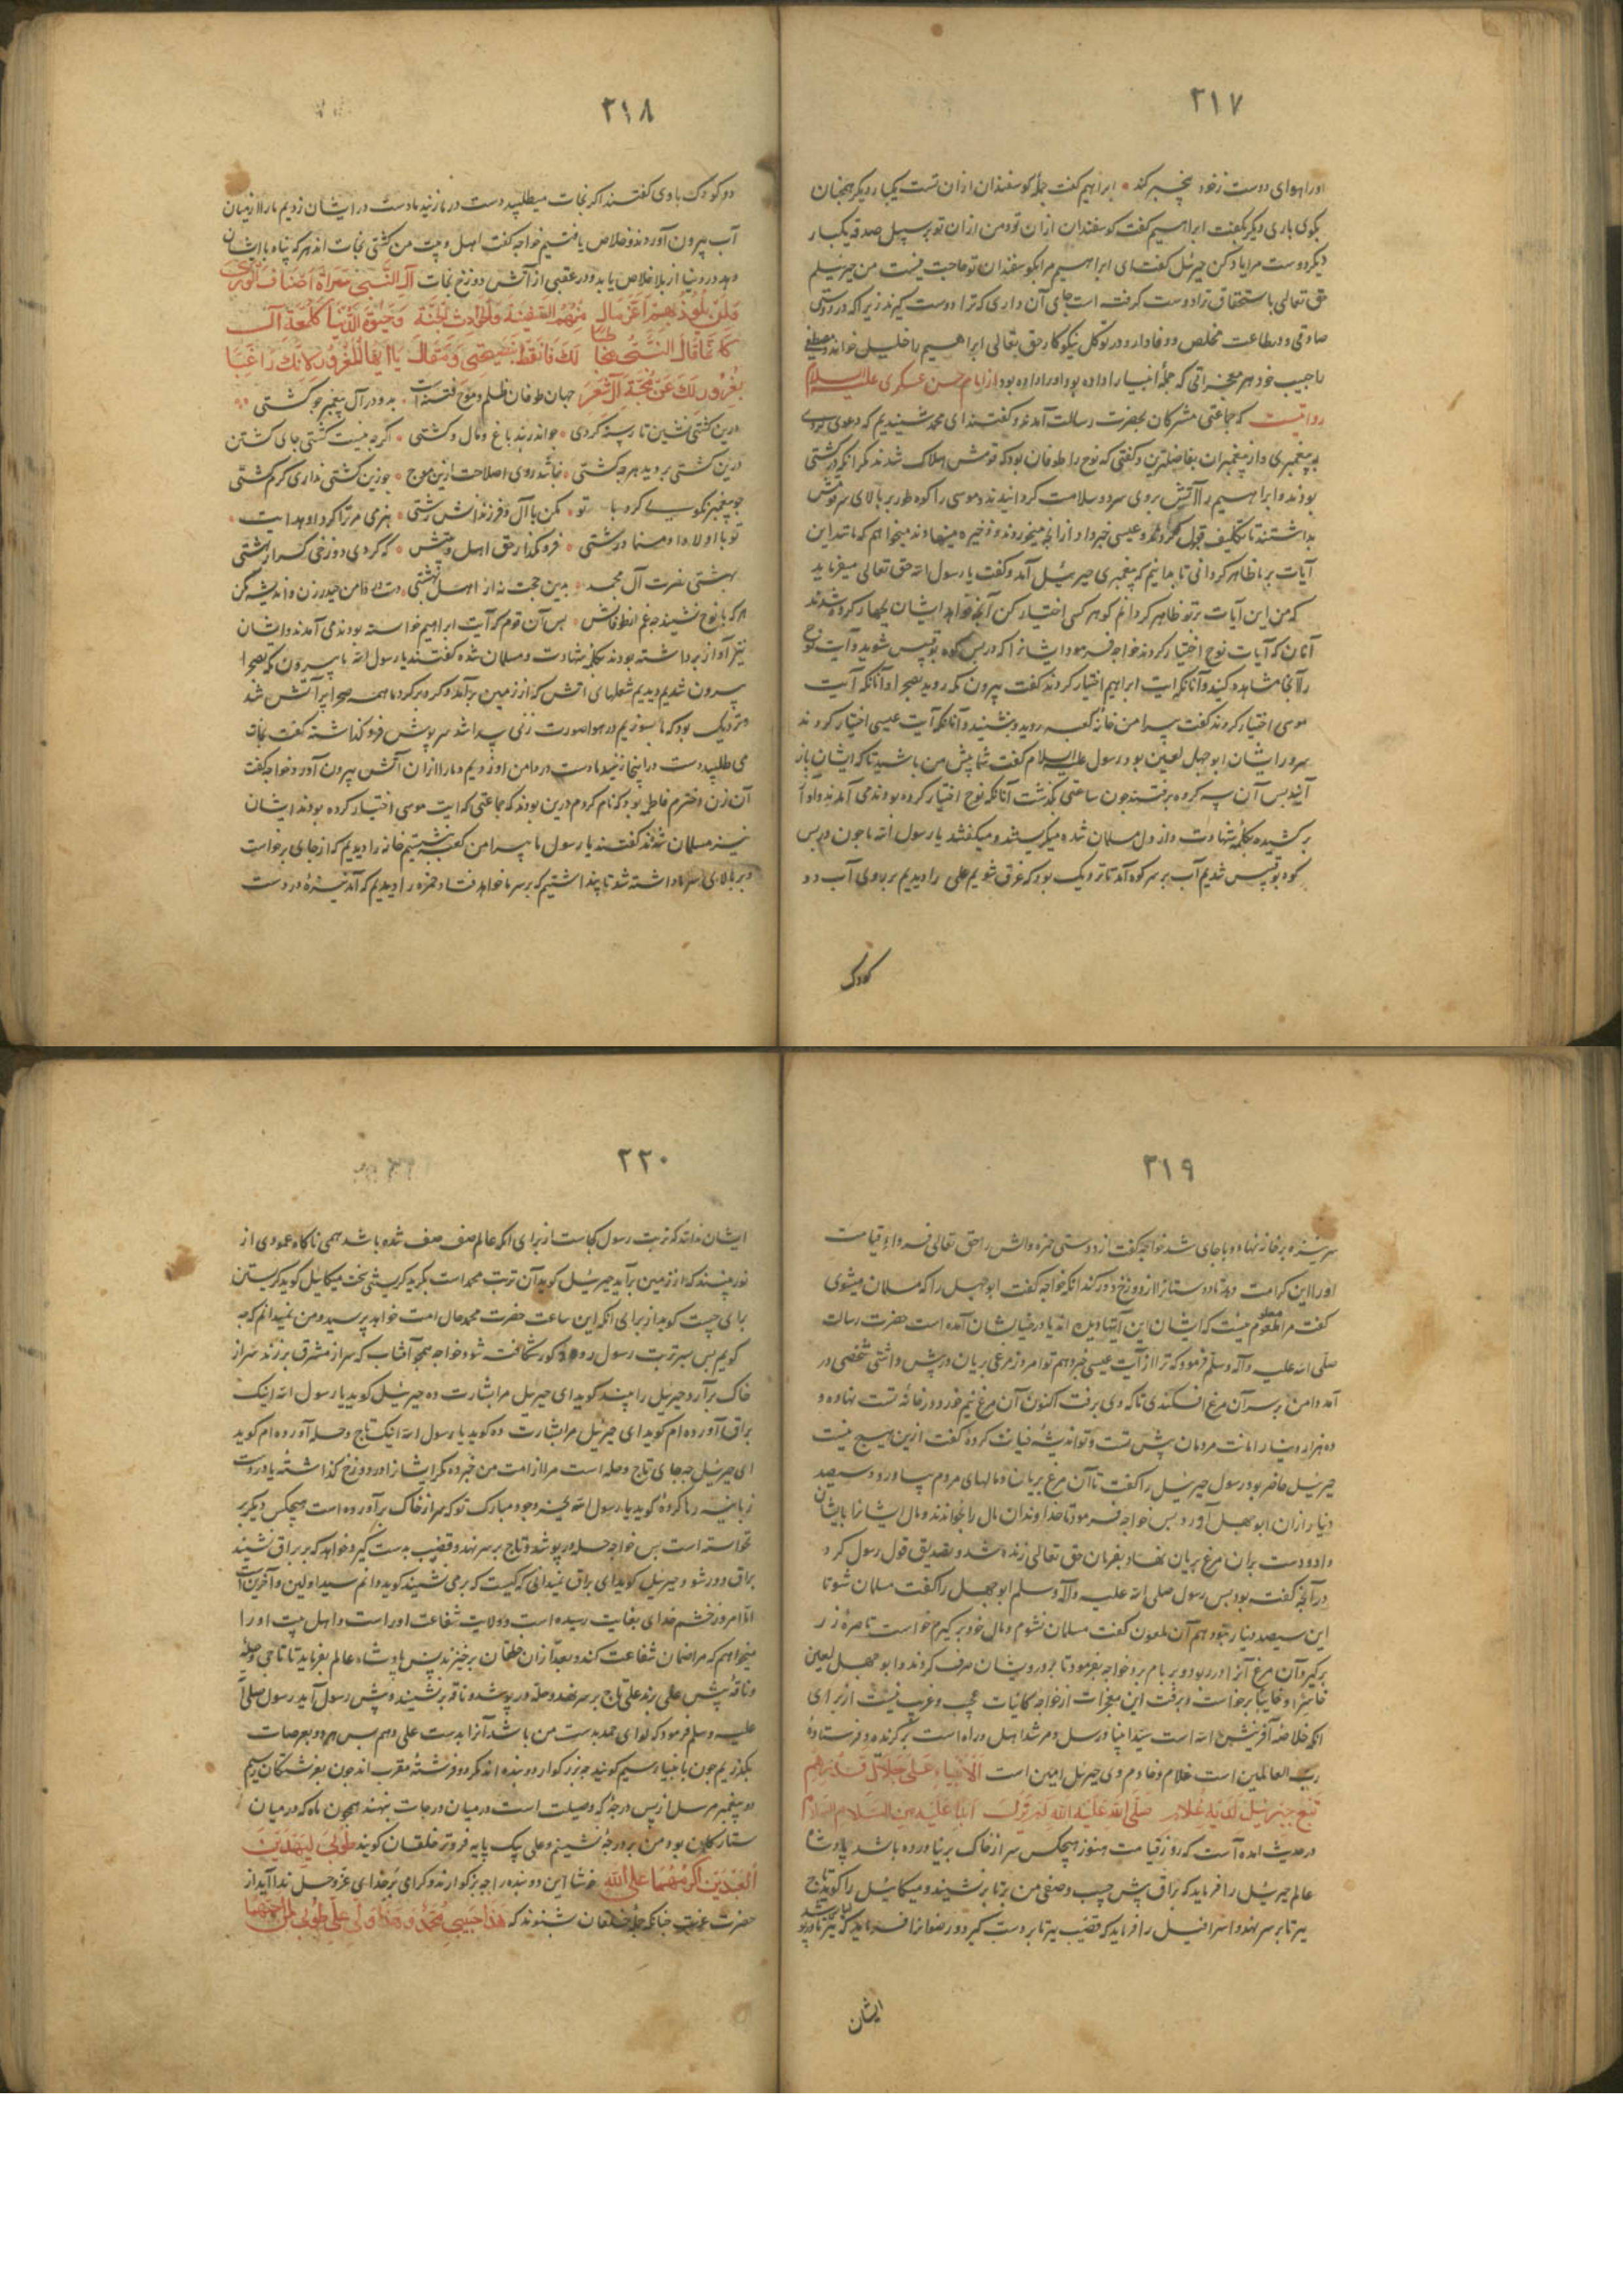 ۲۱۷
اورا هوای دوست زخود بیخبر کند * ابراهیم گفت جمله کوسفندان ازان تست یکبار دیکر همچنان
بکوی باری دیکر بکفت ابراهیم گفت کوسفندان ازان تو ومن ازان تو بر سبیل صدقه یکبار
دیکر دوست مرا یاد کن جبرئیل کفت ای ابراهیم مرا بکوسفندان تو حاجت نیست من جبرئیلم
حق تعالی باستحقاق ترا دوست کرفت است جای آن داری که ترا دوست کیرند زیرا که در دوستی
صادقی ودر طاعت مخلص ووفادار ودر توکل نیکوکار حق تعالی ابراهیم را خلیل خواند ومصطفی
را حبیب خود هر معجزاتی که جملهٔ انبیا را داده بود اورا داده بود از امام حسن عسکری علیه السلام
روایتست که جماعتی مشرکان بحضرت رسالت آمدند وکفتند ای محمد شنیدیم که دعوی
به پیغمبری واز پیغمبران بفاضلترین وکفتی که نوح را طوفان بود که قومش هلاک شدند مکر آنکه در کشتی
بودند وابراهیم را آتش بروی سرد وسلامت کردانیدند وموسی را کوه طور بر بالای سر قومش
بداشتند تا تکلیف قبول کردند وعیسی خبر داد از آنچه میخوردند وذخیره مینهادند میخواهم که مانند این
آیات بر ما ظاهر کردانی تا بدانیم که پیغمبری جبرئیل آمد وکفت یا رسول الله حق تعالی میفرماید
که من این آیات بر تو ظاهر کردانم کو هر کسی اختیار کن آنچه خواهد ایشان چهار کروه شدند
آنان که آیات نوح اختیار کردند خواجه فرمود ایشانرا که در پس کوه بوقبیس شوید وآیت نوح
را آنجا مشاهده کنید وآنانکه آیت ابراهیم اختیار کردند کفت بیرون مکه روید بصحرا وآنانکه آیت
موسی اختیار کردند کفت پیرامن خانه کعبه روید وبنشینید وآنانکه آیت عیسی اختیار کردند
سرور ایشان ابوجهل لعین بود رسول علیه السلام کفت شما پیش من باشید تا که ایشان باز
آیند پس آن سه کروه برفتند چون ساعتی بکذشت آنانکه نوح اختیار کرده بودند می آمدند وآواز
بر کشیده بکلمهٔ شهادت واز دل مسلمان شده میکریستند ومیکفتند یا رسول الله ما چون در پس
کوه بوقبیس شدیم آب بر سر کوه آمد تا نزدیک بود که غرق شویم علی را دیدیم بر روی آب دو
کودک
۲۱۸
دو کودک با وی کفتند اکر نجات میطلبید دست در ما زنید ما دست در ایشان زدیم ما را از میان
آب بیرون آوردند وخلاص یافتیم خواجه کفت اهل وبیت من کشتی نجات اند هر که پناه با ایشان
دهد در دنیا از بلا خلاص یابد ودر عقبی از آتش دوزخ نجات
جهان طوفان ظلم وموج فتنه است * بدو در آل پیغمبر چو کشتی
درین کشتی نشین تا رسته کردی * چو اندر بند باغ ومال وکشتی * اکرچه نیست کشتی جای کشتن
درین کشتی بروید هرچه کشتی * نباشد روی اصلاحت ازین موج * جوزین کشتی نداری کرم کشتی
چو پیغمبر نکویی کرد با تو * مکن با آل وفرزندانش زشتی * هنر می مر ترا کرد او هدایت *
تو با اولاد او منما درشتی * فرو مکذار حق اهل بیتش * که کردی دوزخی کر از بهشتی
بهشتی نصرت آل محمد * بدین حجت نه از اهل بهشتی * دست در دامن حیدر زن واندیشه مکن
هر که با نوح نشیند چه غم از طوفانش * پس آن قوم که آیت ابراهیم خواسته بودند می آمدند وایشان
نیز آواز برداشته بودند بکلمه شهادت ومسلمان شده کفتند یا رسول الله ما بیرون مکه بصحرا
بیرون شدیم دیدیم شعلهای آتش که از زمین برآمد وکرد بر کرد ما همه صحرا پر آتش شد
ونزدیک بود که ما بسوزیم در هوا صورت زنی پیدا شد سر پوش فرو کذاشته کفت نجات
می طلبید دست در اینجا زنید ما دست در دامن او زدیم وما را ازان آتش بیرون آورد خواجه کفت
آن زن دخترم فاطمه بود که نام کردم درین بودند که جماعتی که آیت موسی اختیار کرده بودند ایشان
نیز مسلمان شدند کفتند یا رسول ما پیرامن کعبه بنشستیم خانه را دیدیم که از جای برخواست
وبر بالای سر ما داشته شد تا پنداشتیم که بر سر ما خواهد فتاد حمزه را دیدیم که آمد نیزهٔ در دست
۲۱۹
سر نیزه بر خانه نهاد وبا جای شد خواجه کفت از دوستی حمزه واش را حق تعالی فرداء قیامت
اورا این کرامت دهد تا دوستانرا از دوزخ دور کند آنکه خواجه کفت ابوجهل را که مسلمان میشوی
کفت مرا معلوم نیست که ایشان این آیتها دیده اند یا در خیالشان آمده است حضرت رسالت
صلی الله علیه وآله وسلم فرمود که ترا از آیت عیسی خبر دهم تو امروز مرغی بریان در پیش داشتی شخصی در
آمد دامن بر سر آن مرغ افکندی تا که وی برفت اکنون آن مرغ نیم خورد در خانهٔ تست نهاده و
ده هزار دینار امانت مردمان پیش تست وتو اندیشهٔ خیانت کردهٔ کفت ازین هیچ نیست
جبرئیل حاضر بود رسول جبرئیل را کفت تا آن مرغ بریان ومالهای مردم بیاورد وسیصد
دینار ازان ابوجهل آورد پس خواجه فرمود تا خداوندان مال را بخواندند ومال ایشانرا بایشان
داد ودست بران مرغ بریان نهاد بفرمان حق تعالی زنده شد وتصدیق قول رسول کرد
در آنچه کفت بود پس رسول صلی الله علیه وآله وسلم ابوجهل را کفت مسلمان شو تا
این سیصد دینار بتو دهم آن ملعون کفت مسلمان نشوم ومال خود بر کیرم خواست تا صرهٔ زر
بر کیرد آن مرغ آنرا در ربود وبر بام برد خواجه بفرمود تا بر درویشان صرف کردند وابوجهل لعین
خاسرا وخایبا برخواست وبرفت این معجزات از خواجه کائنات عجب وغریب نیست از برای
آنکه خلاصهٔ آفرینش الله است سید انبیا ورسل ومرشد اهل وراه است برگزیده وفرستادهٔ
رب العالمین است غلام وخادم وی جبرئیل امین است الانبیاء علی جلال قدرهم
در حدیث آمده است که روز قیامت هنوز هیچکس سر از خاک بر نیاورده باشد پادشاه
عالم جبرئیل را فرماید که براق پیش حبیب وصفی من برتا برنشیند ومیکائیل را کوید تاج
برتا بر سر نهد واسرافیل را فرماید که قضیب برتا بر دست کیرد ورضوانرا فرماید که
ایشان
۲۲۰
ایشان ندانند که تربت رسول کجاست از برای آنکه عالم صف صف شده باشد همی ناکاه عمودی از
نور بینند که از زمین برآید جبرئیل کوید آن تربت محمد است بکرید کریستی سخت میکائیل کوید کریستن
برای چیست کوید از برای آنکه این ساعت حضرت محمد حال امت خواهد پرسید ومن نمیدانم که چه
کویم پس سر تربت رسول رود کور شکافته شود خواجه همچو آفتاب که سر از مشرق برزند سر از
خاک برآرد جبرئیل را بیند کوید ای جبرئیل مرا بشارت ده جبرئیل کوید یا رسول الله اینک
براق آورده ام کوید ای جبرئیل مرا بشارت ده کوید یا رسول الله اینک تاج وحله آورده ام کوید
ای جبرئیل چه جای تاج وحله است مرا از امت من خبر ده مکر ایشانرا در دوزخ کذاشتهٔ یا در دست
زبانیه رها کردهٔ کوید یا رسول الله بحق وجود مبارک تو که سر از خاک برآورده است هیچکس دیکر بر
نخواسته است پس خواجه حله در پوشد وتاج بر سر نهد وقضیب به دست کیرد خواهد که بر براق نشیند
براق دور شود جبرئیل کوید ای براق نمیدانی که کیست که بر می نشیند کوید دانم سید اولین وآخرین است
اما امروز خشم خدای بغایت رسیده است وولایت شفاعت اوراست واهل بیت اورا
میخواهم که مرا ضمان شفاعت کند وبعد ازان خلقان برخیزند پس پادشاه عالم بفرماید تا تاجی وحلهٔ
وناقهٔ پیش علی برند علی تاج بر سر نهد وحله در پوشد وناقه برنشیند وپیش رسول آید رسول صلی الله
علیه وسلم فرمود که لوای حمد بدست من باشد آنرا بدست علی دهم پس هر دو بعرصات
بکذریم چون بانبیا رسیم کویند چه بزرکوار دو بنده اند مکر دو فرشتهٔ مقرب اند چون بفرشتکان رسیم
دو پیغمبر مرسل از پس درجهٔ که وصیلت است در میان درجات بنهند همچون ماه که در میان
ستارکان بود من بر درجهٔ نشینم وعلی یک پایه فروتر خلقان کویند طوبی لهذین
العبدین اکرمهما علی الله خوشا این دو بنده را چه بزکوارند وکرامی بر خدای عز وجل ندا آید از
حضرت عزت چنانکه جمله خلقان شنوند که هذا حبیبی محمد وهذا ولی علی طوبی لمن احبهما